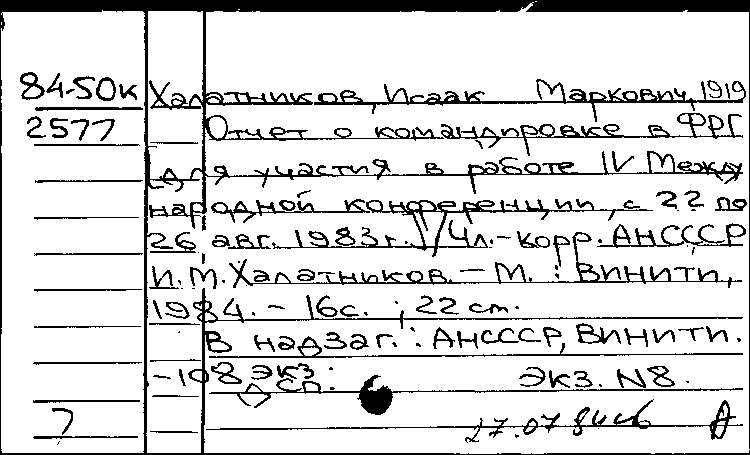 84-50к Халатников, Исаак Маркович, 1919
2577 Отчет о командировке в ФРГ
[для участия в работе IV Между
народной конференции, с 22 по
26 авг. 1983г.]/Чл.-корр. АНСССР
И.М.Халатников. – М. : ВИНИТИ,
1984. – 16с. ; 22 см.
В надзаг. : АНСССР, ВИНИТИ.
-108 экз.
СП: ЭКЗ. N8.
27.07.84